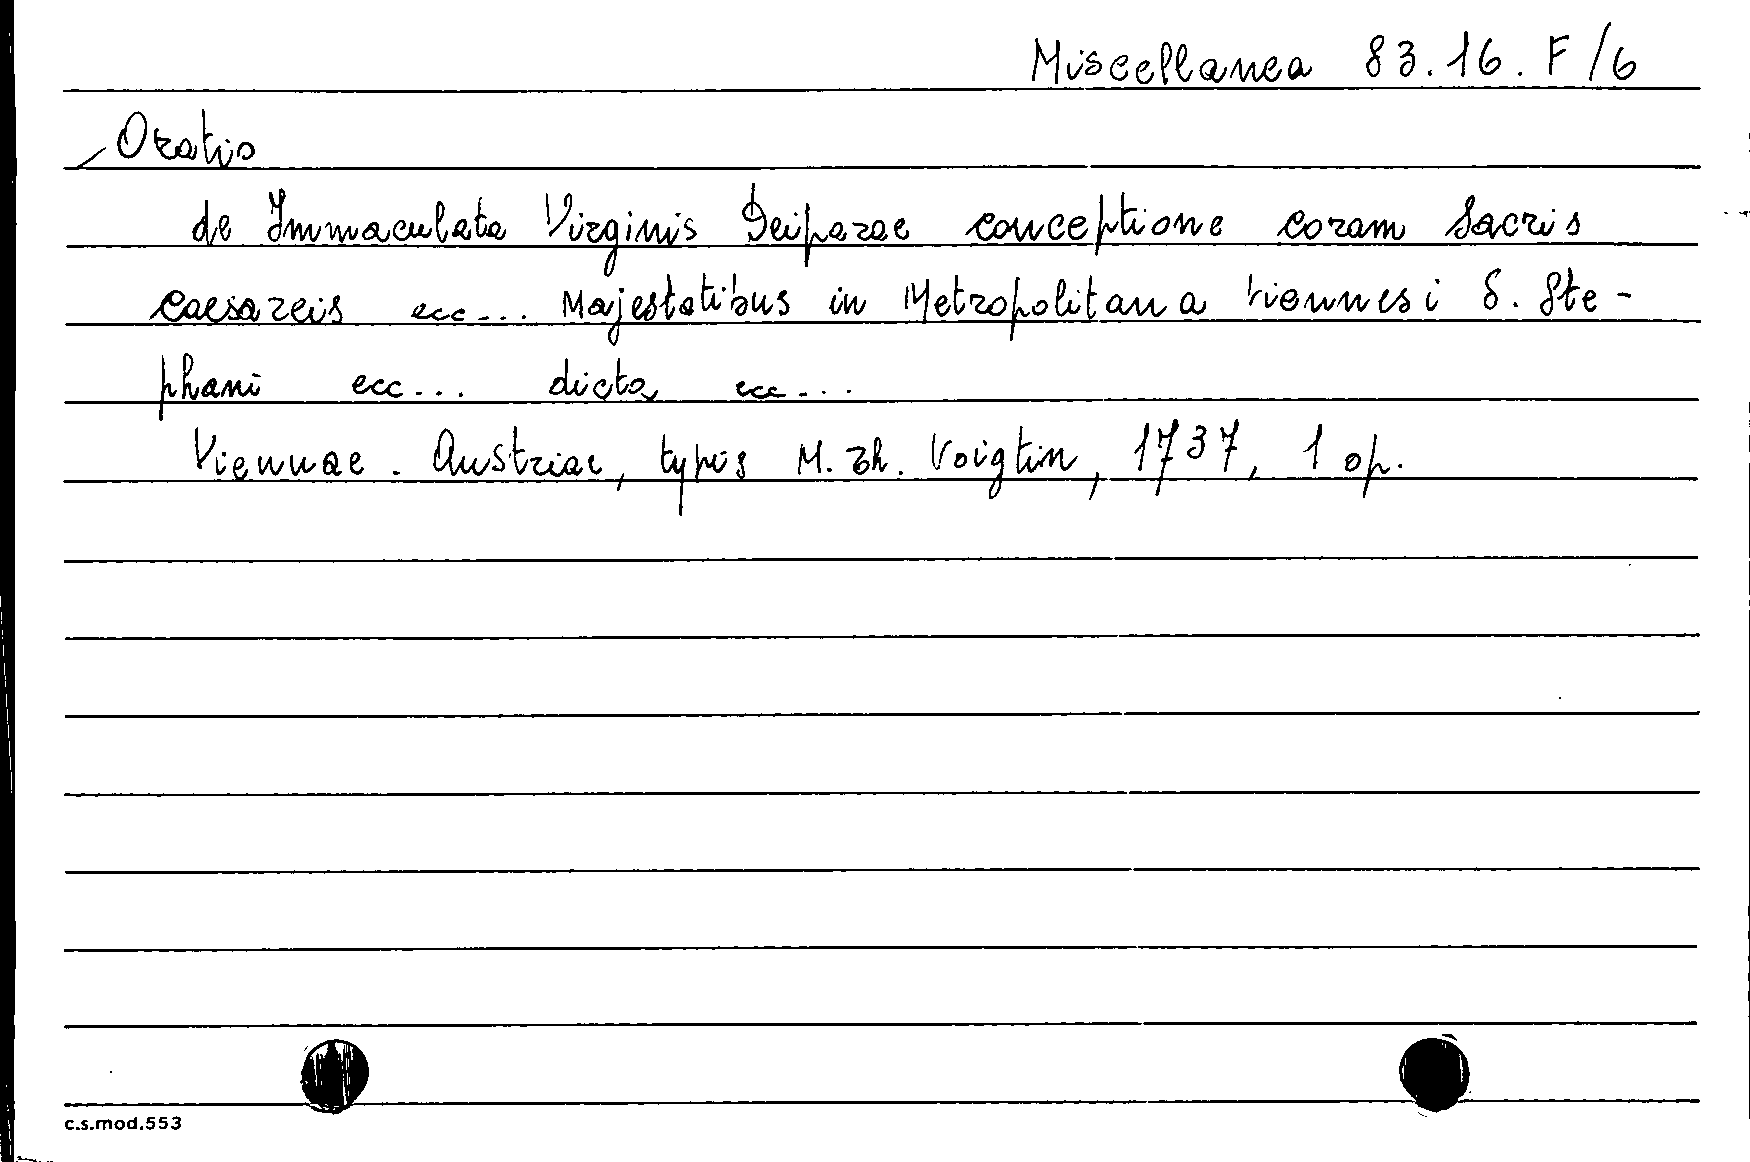 Miscellanea 83.16.F/6
Oratio
de Immaculata Virginis Deiparae conceptione coram Sacris
caesareis ecc... Majestatibus in Metropolitana viennesi S. Ste-
phani ecc... dicta ecc...
Viennae. Austriae, typis M. Th. Voigtin, 1737, 1 op.
c.s.mod.553